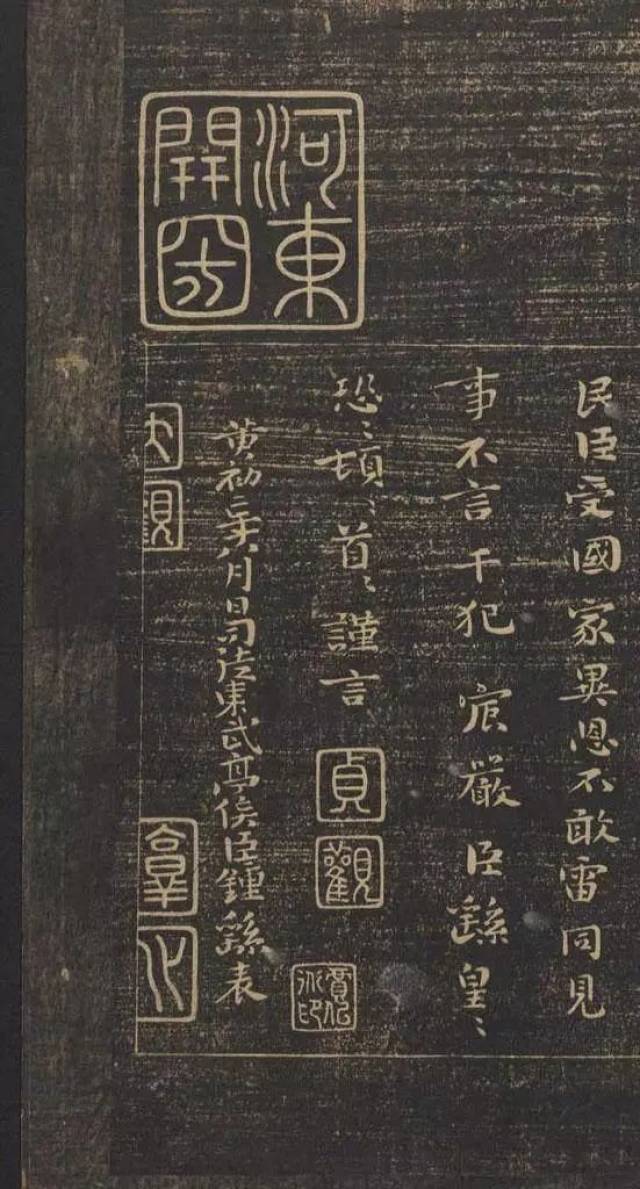 河東
民臣受國家異恩不敢雷同見
事不言干犯宸嚴臣繇皇〻
恐〻頓〻首〻謹言
貞觀
黄初二年八月日司徒東武亭侯臣鍾繇表